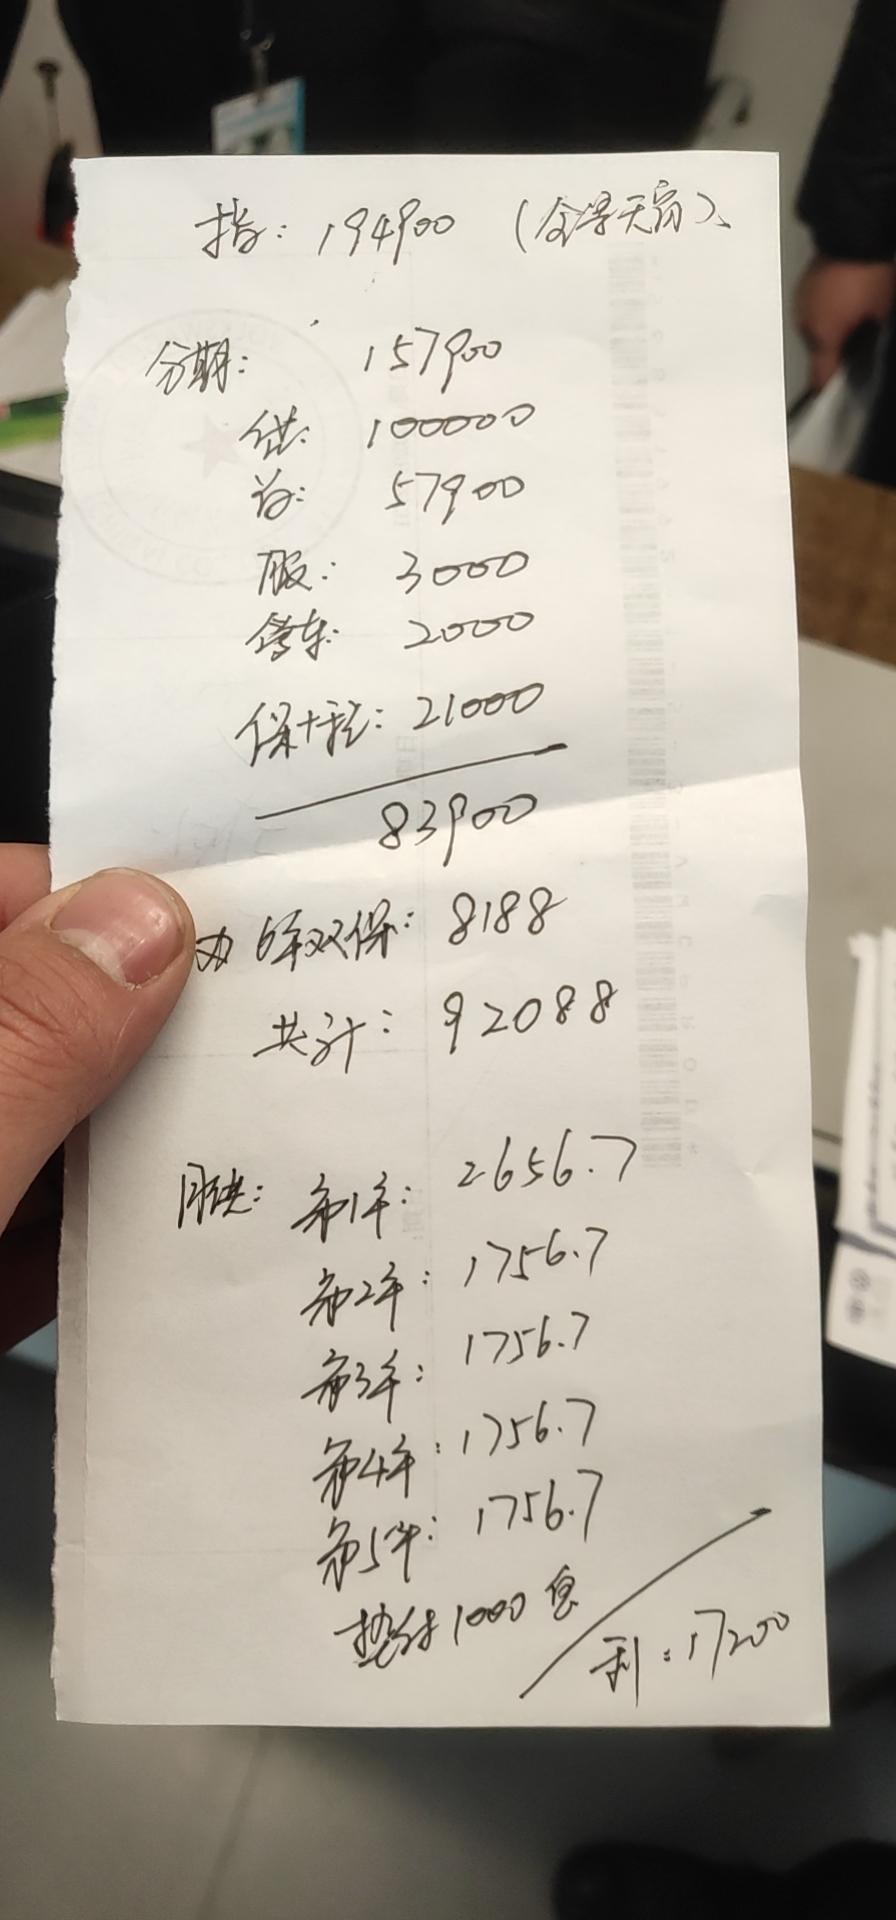 指: 194900 (全景天窗)
分期: 157900
供: 100000
首: 57900
服: 3000
停车: 2000
保+税: 21000
83900
办 6年双保: 8188
共计: 92088
月供: 第1年: 2656.7
第2年: 1756.7
第3年: 1756.7
第4年: 1756.7
第5年: 1756.7
垫付1000息
利: 17200